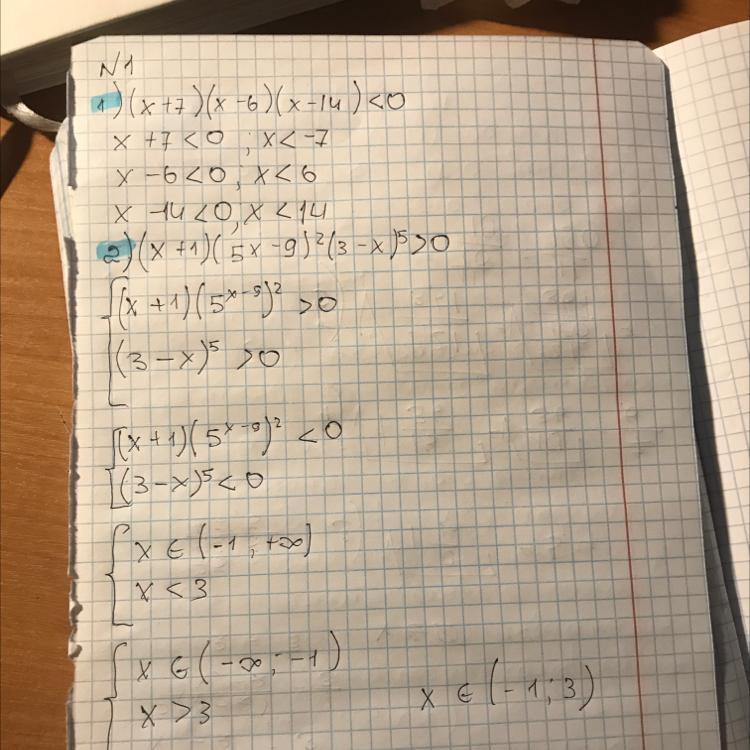 N1
1) (x+7)(x-6)(x-14)<0
x+7<0; x<-7
x-6<0, x<6
x-14<0, x<14
2) (x+1)(5x-9)²(3-x)⁵>0
(x+1)(5ˣ⁻⁹)²>0
(3-x)⁵>0
(x+1)(5ˣ⁻⁹)²<0
(3-x)⁵<0
x∈(-1;+∞)
x<3
x∈(-∞;-1)
x>3
x∈(-1;3)